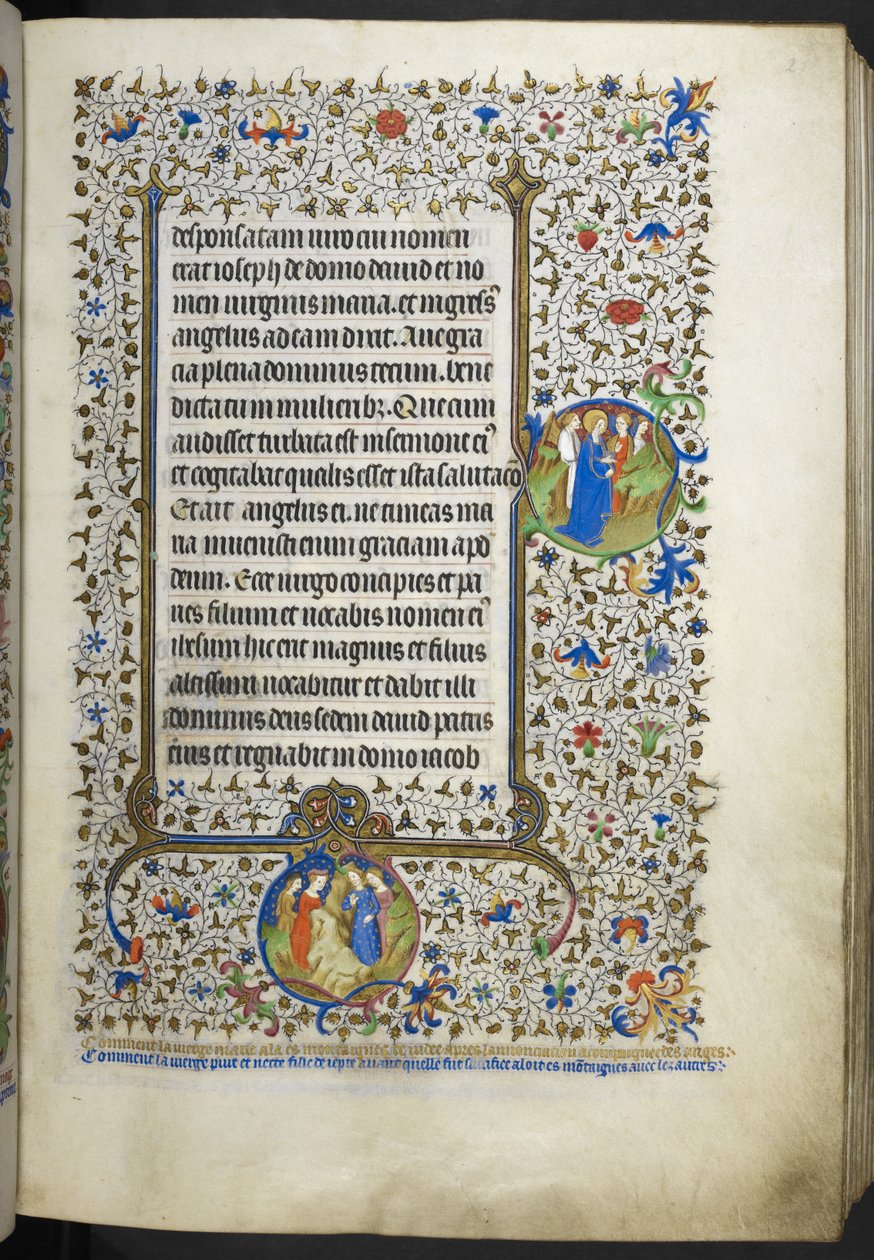 27
desponsatam uiro cui nomen
erat ioseph de domo dauid et no
men uirginis maria. et ingress9
angelus ad eam dixit. Aue gra
cia plena dominus tecum. bene
dicta tu in mulierib3. Que cum
audisset turbata est in sermone ei9
et cogitabat qualis esset ista salutaco
Et ait angelus ei. ne timeas ma
ria inuenisti enim graciam apd
deum. Ecce uirgo concipies et pa
ries filium et uocabis nomen ei9
ihesum hic erit magnus et filius
altissimi uocabitur et dabit illi
dominus deus sedem dauid patris
eius et regnabit in domo iacob
Comment la vierge marie ala es montaignes de iudee apres lannonciacion acompaignee des anges
Comment la vierge pure et nette fille de iepte auant quelle fut sacrifiee aloit es mõtaignes auec lez autres